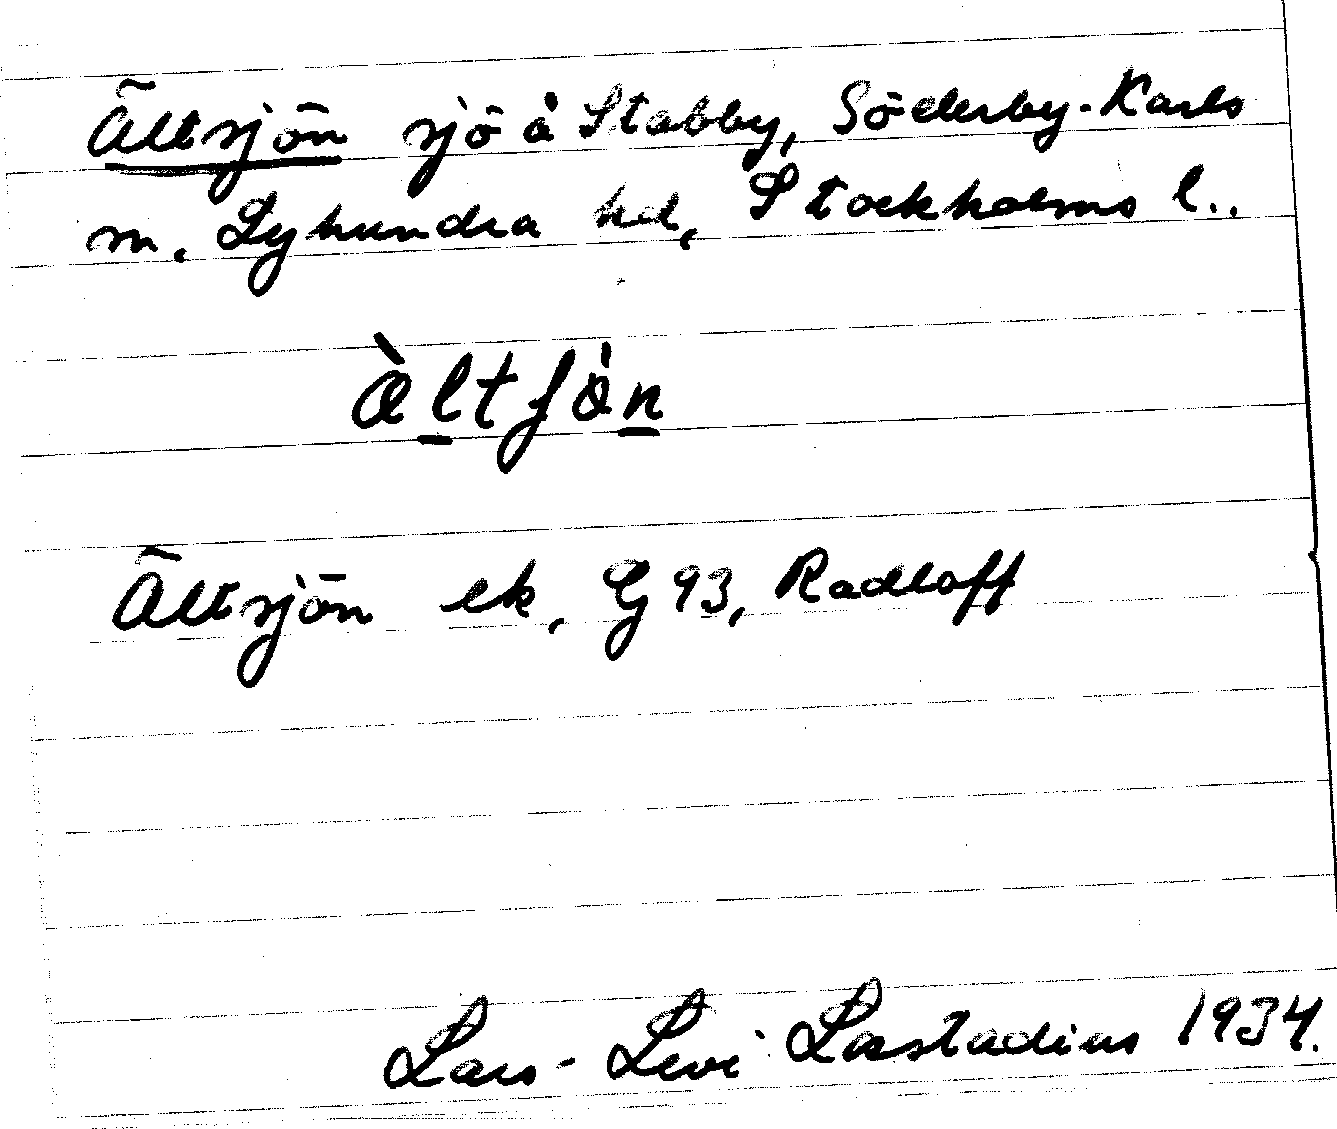 Ältsjön sjö å Stabby, Söderby-Karls
sn, Lyhundra hd, Stockholms l..
æ̀ltʃön
Ältsjön ek, G 93, Radloff
Lars-Levi Læstadius 1934.